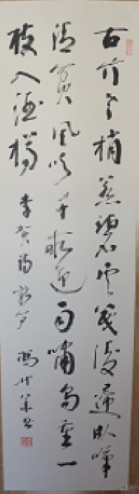 古竹老梢惹碧雲茂陵歸臥嘆
清貧風吹千畝迎雨嘯鳥重一
枝入酒樽 李賀詩新筍